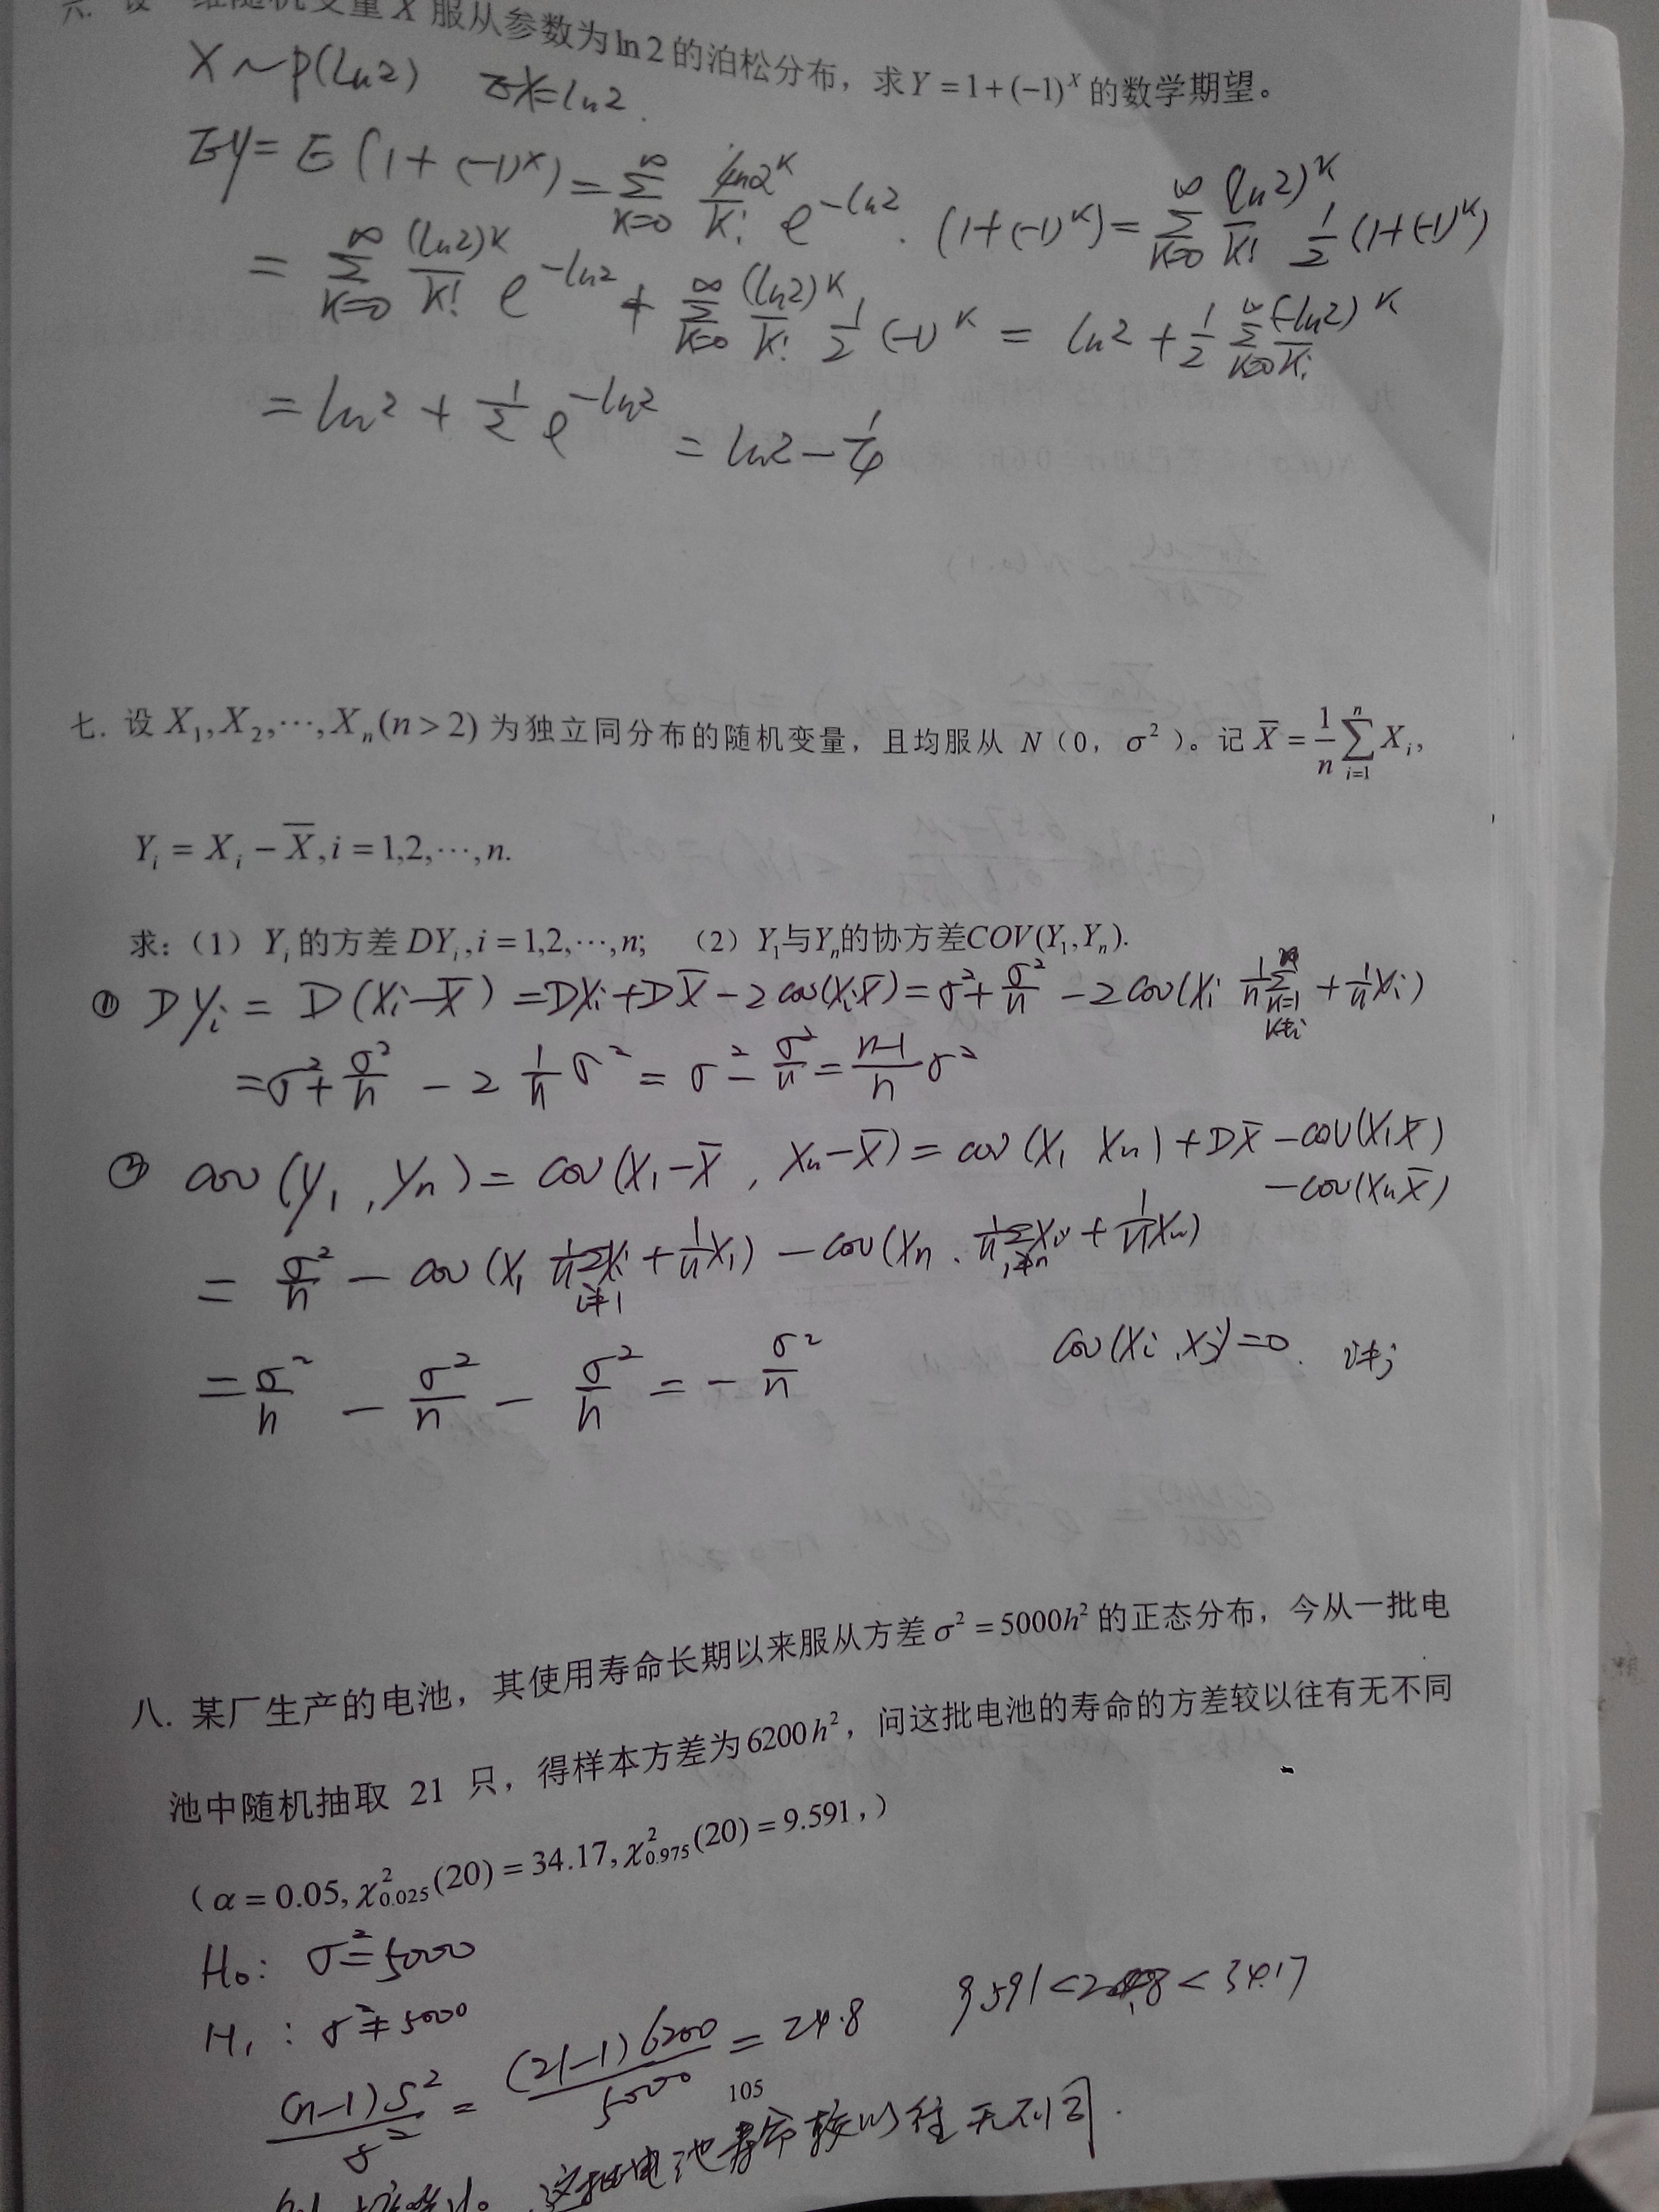 六. 设一维随机变量 X 服从参数为ln2的泊松分布，求Y=1+(-1)^X的数学期望。
X~P(ln2) EX=ln2.
EY= E(1+(-1)^X)=∑_{K=0}^{∞} ln2^K/K! e^{-ln2}.(1+(-1)^K)=∑_{K=0}^{∞} (ln2)^K/K! 1/2(1+(-1)^K)
= ∑_{K=0}^{∞} (ln2)^K/K! e^{-ln2} + ∑_{K=0}^{∞} (ln2)^K/K! 1/2(-1)^K = ln2+1/2 ∑_{K=0}^{∞} (-ln2)^K/K!
= ln2 + 1/2 e^{-ln2} = ln2-1/4
七. 设 X_1,X_2,⋯,X_n(n>2) 为独立同分布的随机变量，且均服从 N（0，σ^2）。记 X̄=1/n ∑_{i=1}^{n} X_i,
Y_i = X_i − X̄,i=1,2,⋯,n.
求：（1）Y_i的方差DY_i,i=1,2,⋯,n; （2）Y_1与Y_n的协方差COV(Y_1,Y_n).
① DY_i = D(X_i-X̄) =DX_i+DX̄-2cov(X_i X̄)=σ^2+σ^2/n -2cov(X_i 1/n∑_{k=1 k≠i}+1/n X_i)
=σ^2+σ^2/n - 2 1/n σ^2 = σ^2-σ^2/n=(n-1)/n σ^2
② cov(Y_1,Y_n)=cov(X_1-X̄, X_n-X̄)=cov(X_1 X_n)+DX̄-cov(X_1X̄)
-cov(X_nX̄)
= σ^2/n - cov(X_1 1/n∑_{i≠1}X_i+1/n X_1) - cov(X_n. 1/n∑_{i≠n}X_i+1/n X_n)
=σ^2/n - σ^2/n - σ^2/n = -σ^2/n cov(X_i,X_j)=0. i≠j
八. 某厂生产的电池，其使用寿命长期以来服从方差σ^2=5000h^2的正态分布，今从一批电
池中随机抽取 21 只，得样本方差为6200h^2，问这批电池的寿命的方差较以往有无不同
（α=0.05,χ^2_{0.025}(20)=34.17,χ^2_{0.975}(20)=9.591，）
H_0: σ^2=5000
H_1: σ^2≠5000
(n-1)S^2/σ^2 = (21-1)6200/5000 = 24.8 9.591<24.8<34.17
105
这批电池寿命较以往无不同.